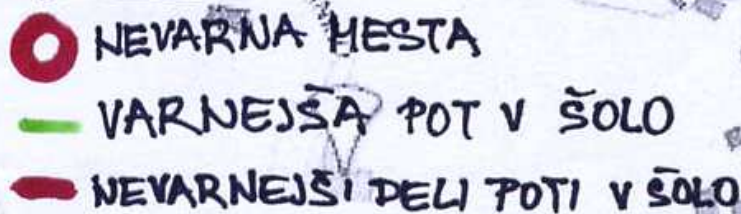 NEVARNA MESTA
VARNEJŠA POT V ŠOLO
NEVARNEJŠI DELI POTI V ŠOLO